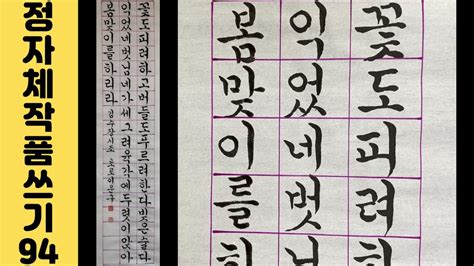 정자체작품쓰기94
꽃도피려하고버들도푸르려한다빚은술다
익었네벗님네가세그려육각에두렷이앉아
봄맞이를하리라
김수장시조
꽃도피려하
익었네벗님
봄맞이를하